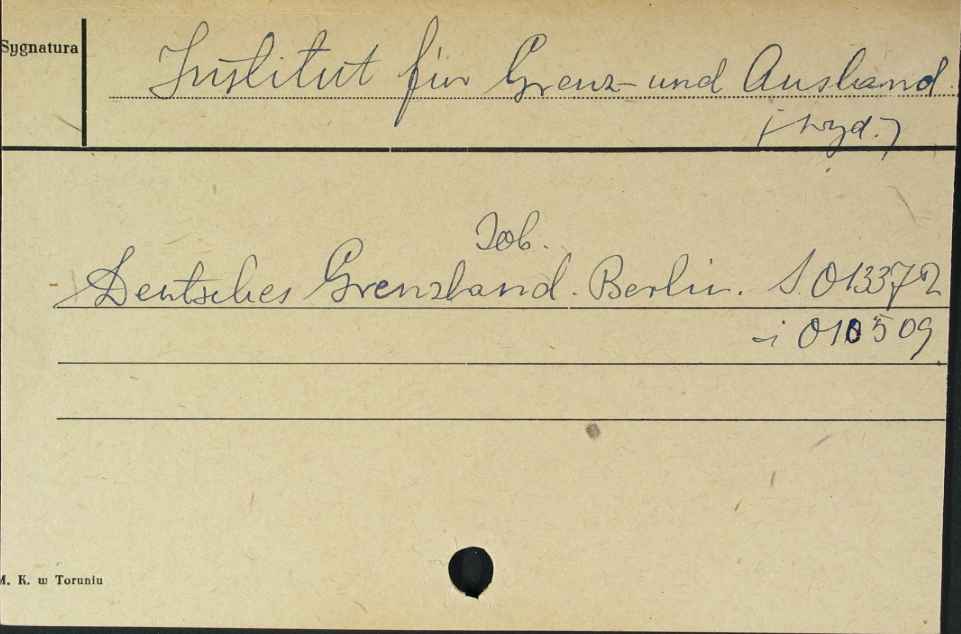 Sygnatura
Institut für Grenz- und Ausland.
(wyd.)
Zob.
Deutsches Grenzland. Berlin. S. 013372
i 010509
M. K. w Toruniu